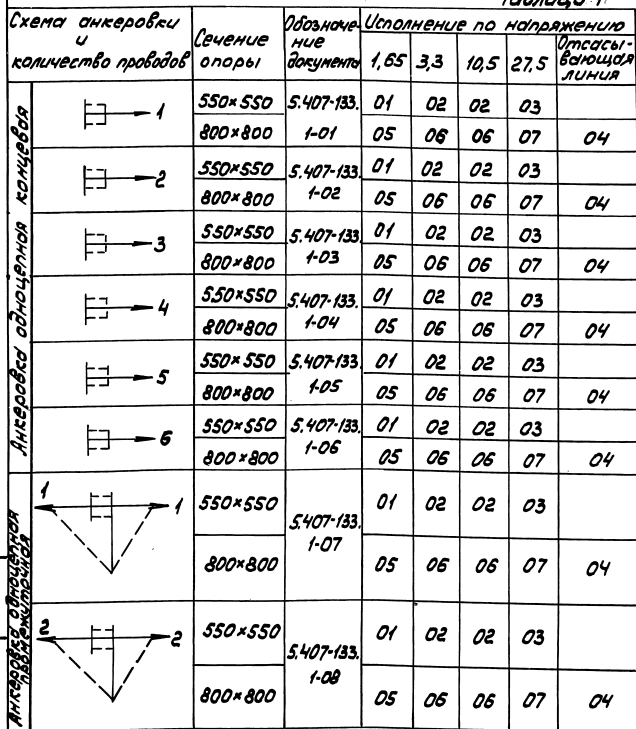 Таблица 1
Схема анкеровки и количество проводов
Сечение опоры
Обозначе-
ние
документа
Исполнение по напряжению
1,65 3,3 10,5 27,5
Отсасы-
вающая
линия
Анкеровка одноцепная концевая
1 550×550 5.407-133. 01 02 02 03
800×800 1-01 05 06 06 07 04
2 550×550 5.407-133. 01 02 02 03
800×800 1-02 05 06 06 07 04
3 550×550 5.407-133. 01 02 02 03
800×800 1-03 05 06 06 07 04
4 550×550 5.407-133. 01 02 02 03
800×800 1-04 05 06 06 07 04
5 550×550 5.407-133. 01 02 02 03
800×800 1-05 05 06 06 07 04
6 550×550 5.407-133. 01 02 02 03
800×800 1-06 05 06 06 07 04
Анкеровка одноцепная
промежуточная
1 1 550×550 5.407-133. 01 02 02 03
800×800 1-07 05 06 06 07 04
2 2 550×550 5.407-133. 01 02 02 03
800×800 1-08 05 06 06 07 04